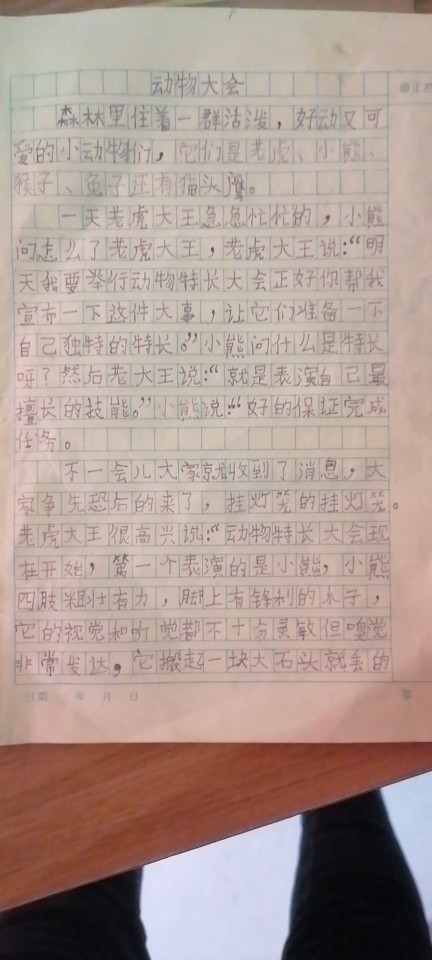 动物大会
森林里住着一群活泼，好动又可
爱的小动物们，它们是老虎、小熊、
猴子、兔子还有猫头鹰。
一天老虎大王急急忙忙的，小熊
问怎么了老虎大王，老虎大王说：“明
天我要举行动物特长大会正好你帮我
宣布一下这件大事，让它们准备一下
自己独特的特长。”小熊问什么是特长
呀？然后老大王说：“就是表演自己最
擅长的技能。”小熊说：“好的保证完成
任务。
不一会儿大家就收到了消息，大
家争先恐后的来了，挂灯笼的挂灯笼。
老虎大王很高兴说：“动物特长大会现
在开始，第一个表演的是小熊，小熊
四肢粗壮有力，脚上有锋利的爪子，
它的视觉和听觉都不十分灵敏但嗅觉
非常发达，它搬起一块大石头就丢的
日期 年 月 日 第